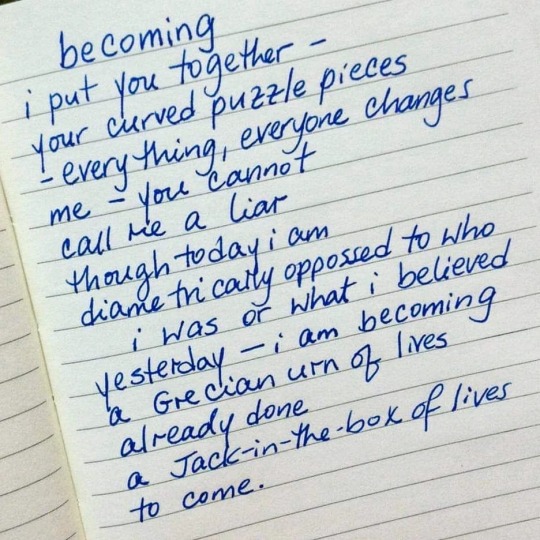 becoming
i put you together -
your curved puzzle pieces
- everything, everyone changes
me - you cannot
call me a liar
though today i am
diametrically oppossed to who
i was or what i believed
yesterday - i am becoming
a Grecian urn of lives
already done
a Jack-in-the-box of lives
to come.